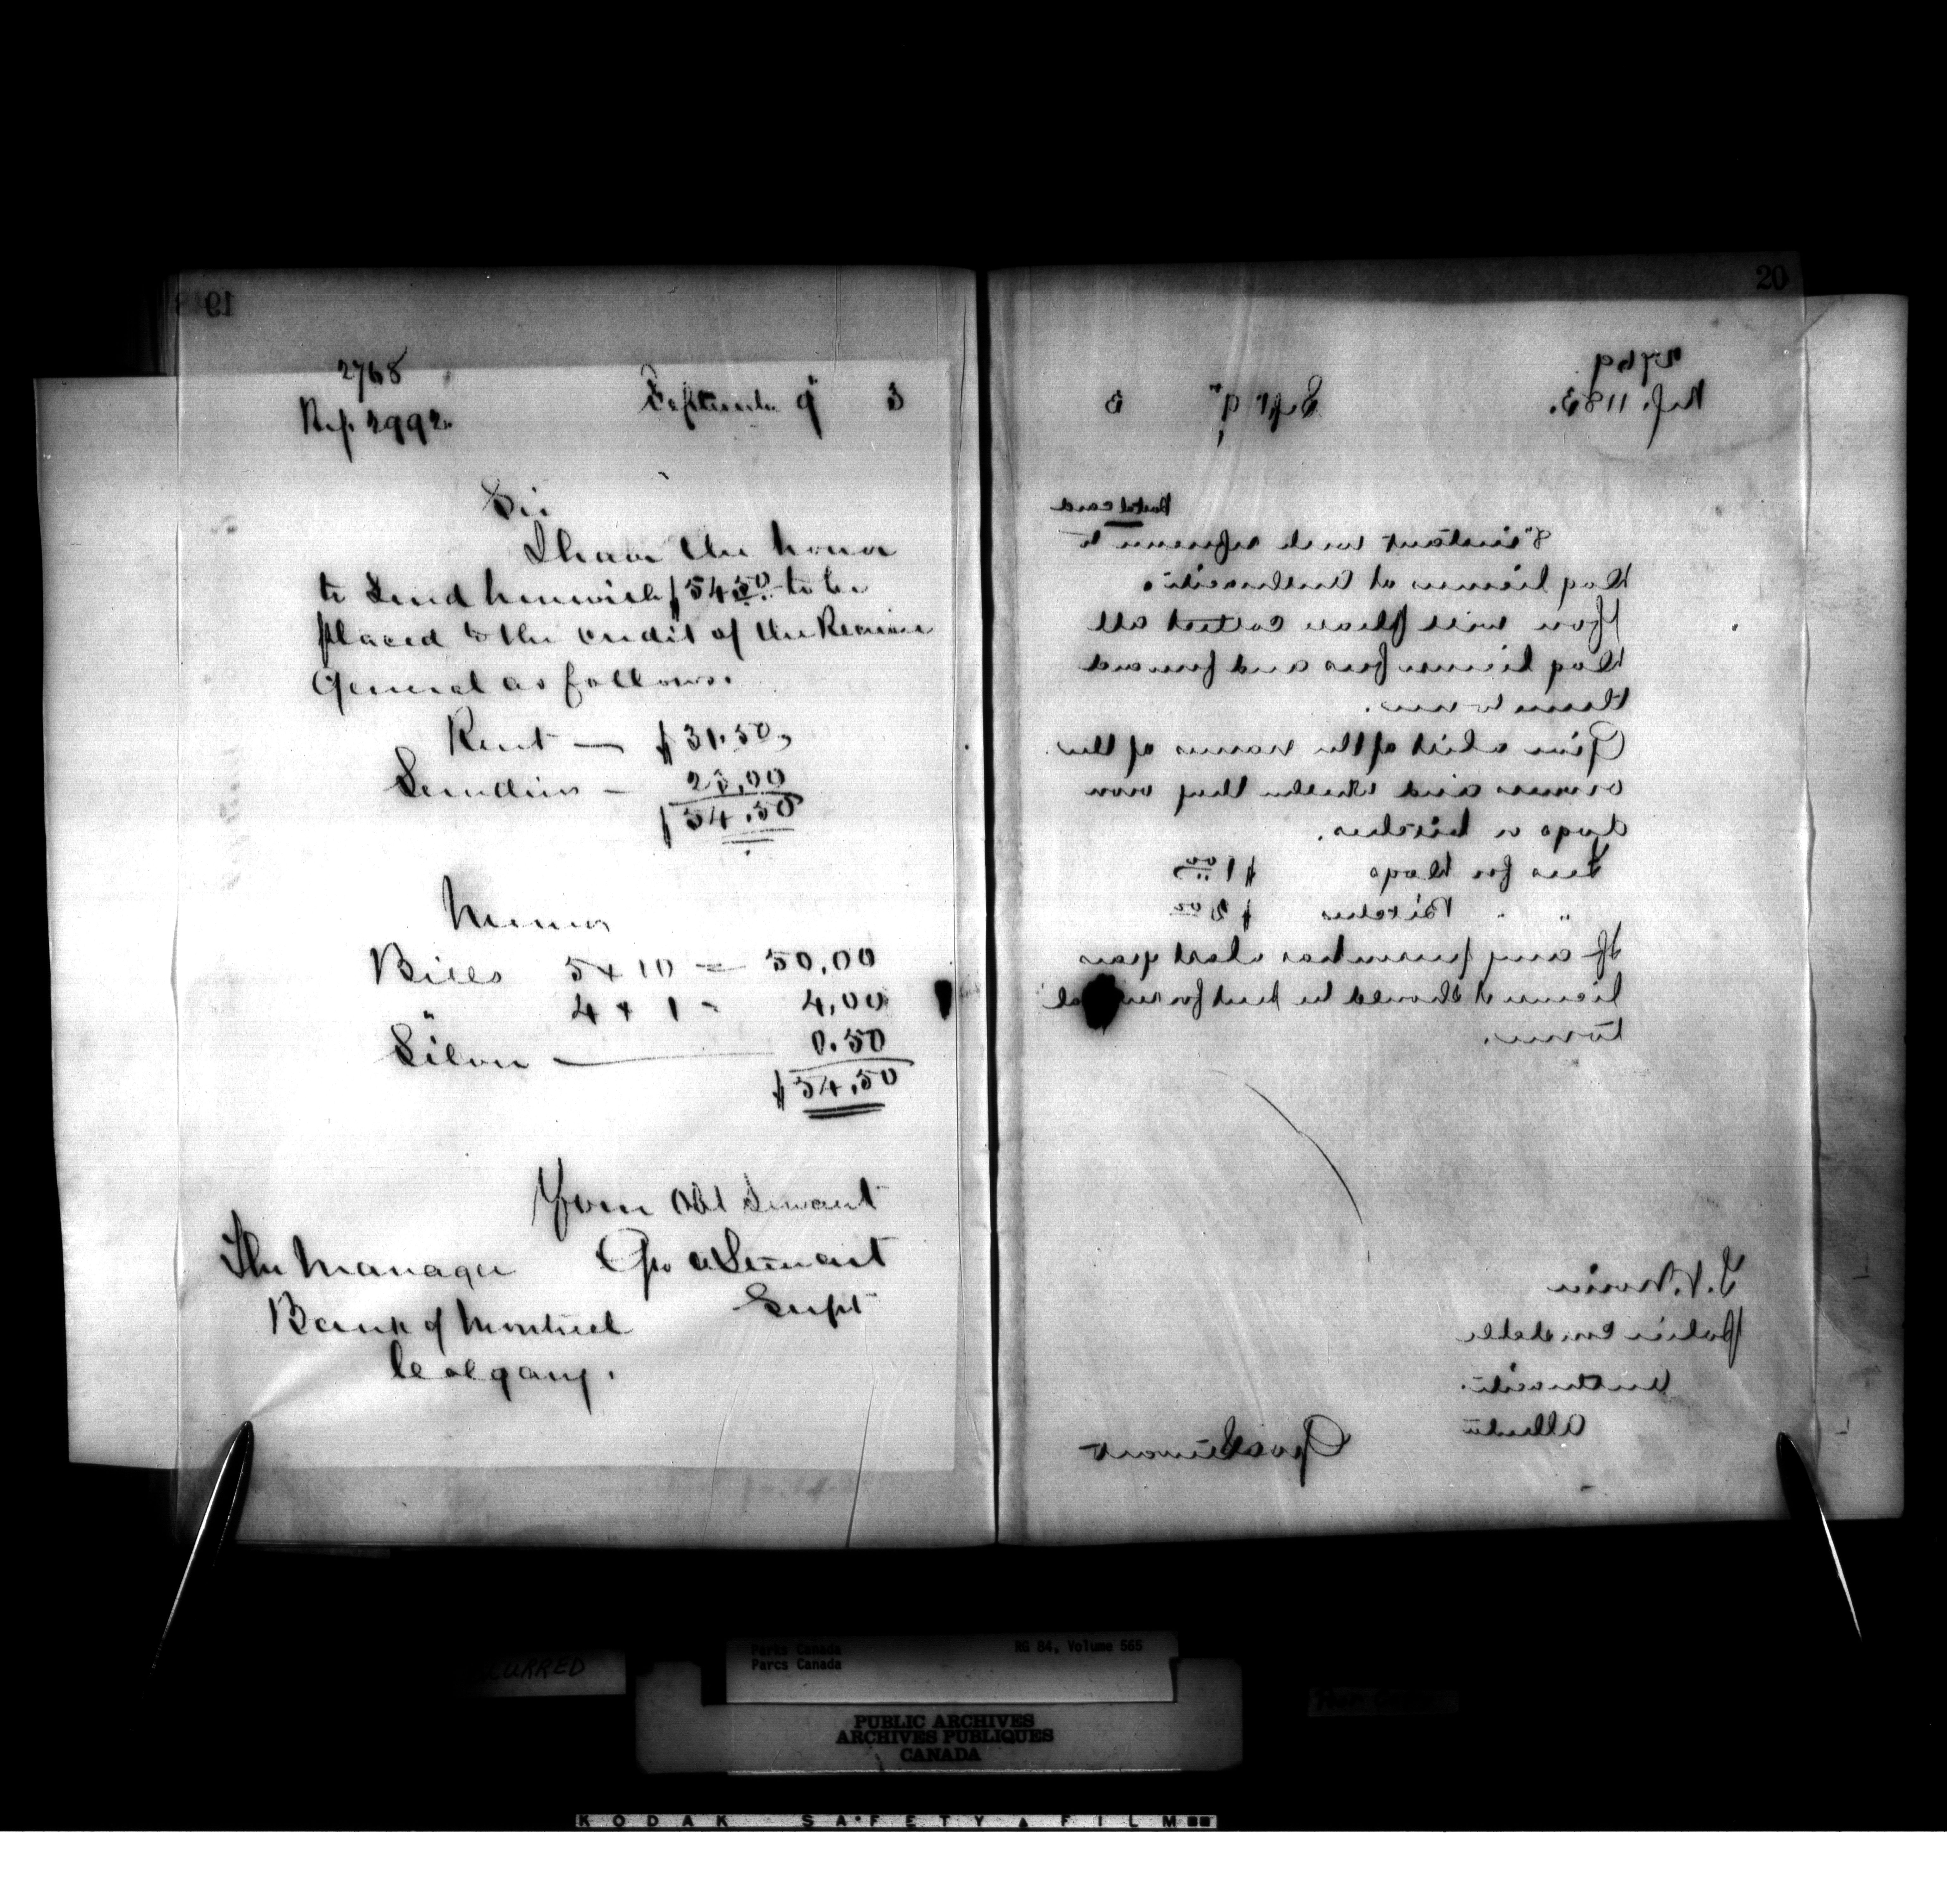 19
2768
Ref. 2992.
September 9th 3
Sir
I have the honor
to send herewith $54.50 to be
placed to the credit of the Receiver
General as follows.
Rent — $31.50,
Sundries — 23.00
$54.50
Memo
Bills 5 x 10 = 50.00
" 4 x 1 = 4.00
Silver — 0.50
$54.50
Your Obt Servant
Geo A Stewart
Supt
The Manager
Bank of Montreal
Calgary.
20
2769
Ref. 1183.
Sept 9th 3
Postal card
8th instant with reference to
Dog license at Anthracite.
You will please collect all
Dog license fees and forward
them to me.
Give a list of the names of the
owners and whether they own
dogs or bitches.
Fees for Dogs $1.00
" " Bitches $2.00
If any person has a last years
license it should be
to me.
Police Constable
Anthracite.
Alberta
Geo A Stewart
Parks Canada
Parcs Canada
RG 84, Volume 565
PUBLIC ARCHIVES
ARCHIVES PUBLIQUES
CANADA
KODAK SAFETY FILM